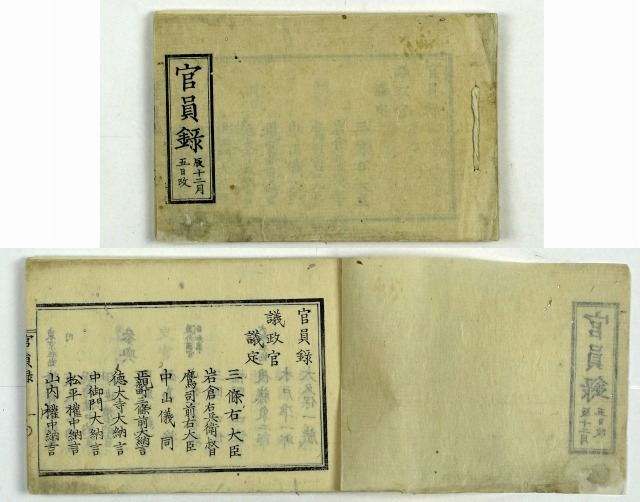 官員録
辰十二月
五日改
官員録
議政官
議定
三條右大臣
岩倉右兵衛督
鷹司前右大臣
中山儀同
正親町三條前大納言
徳大寺大納言
中御門大納言
松平權中納言
山内權中納言
官員録 一
官員録
辰十二月
五日改